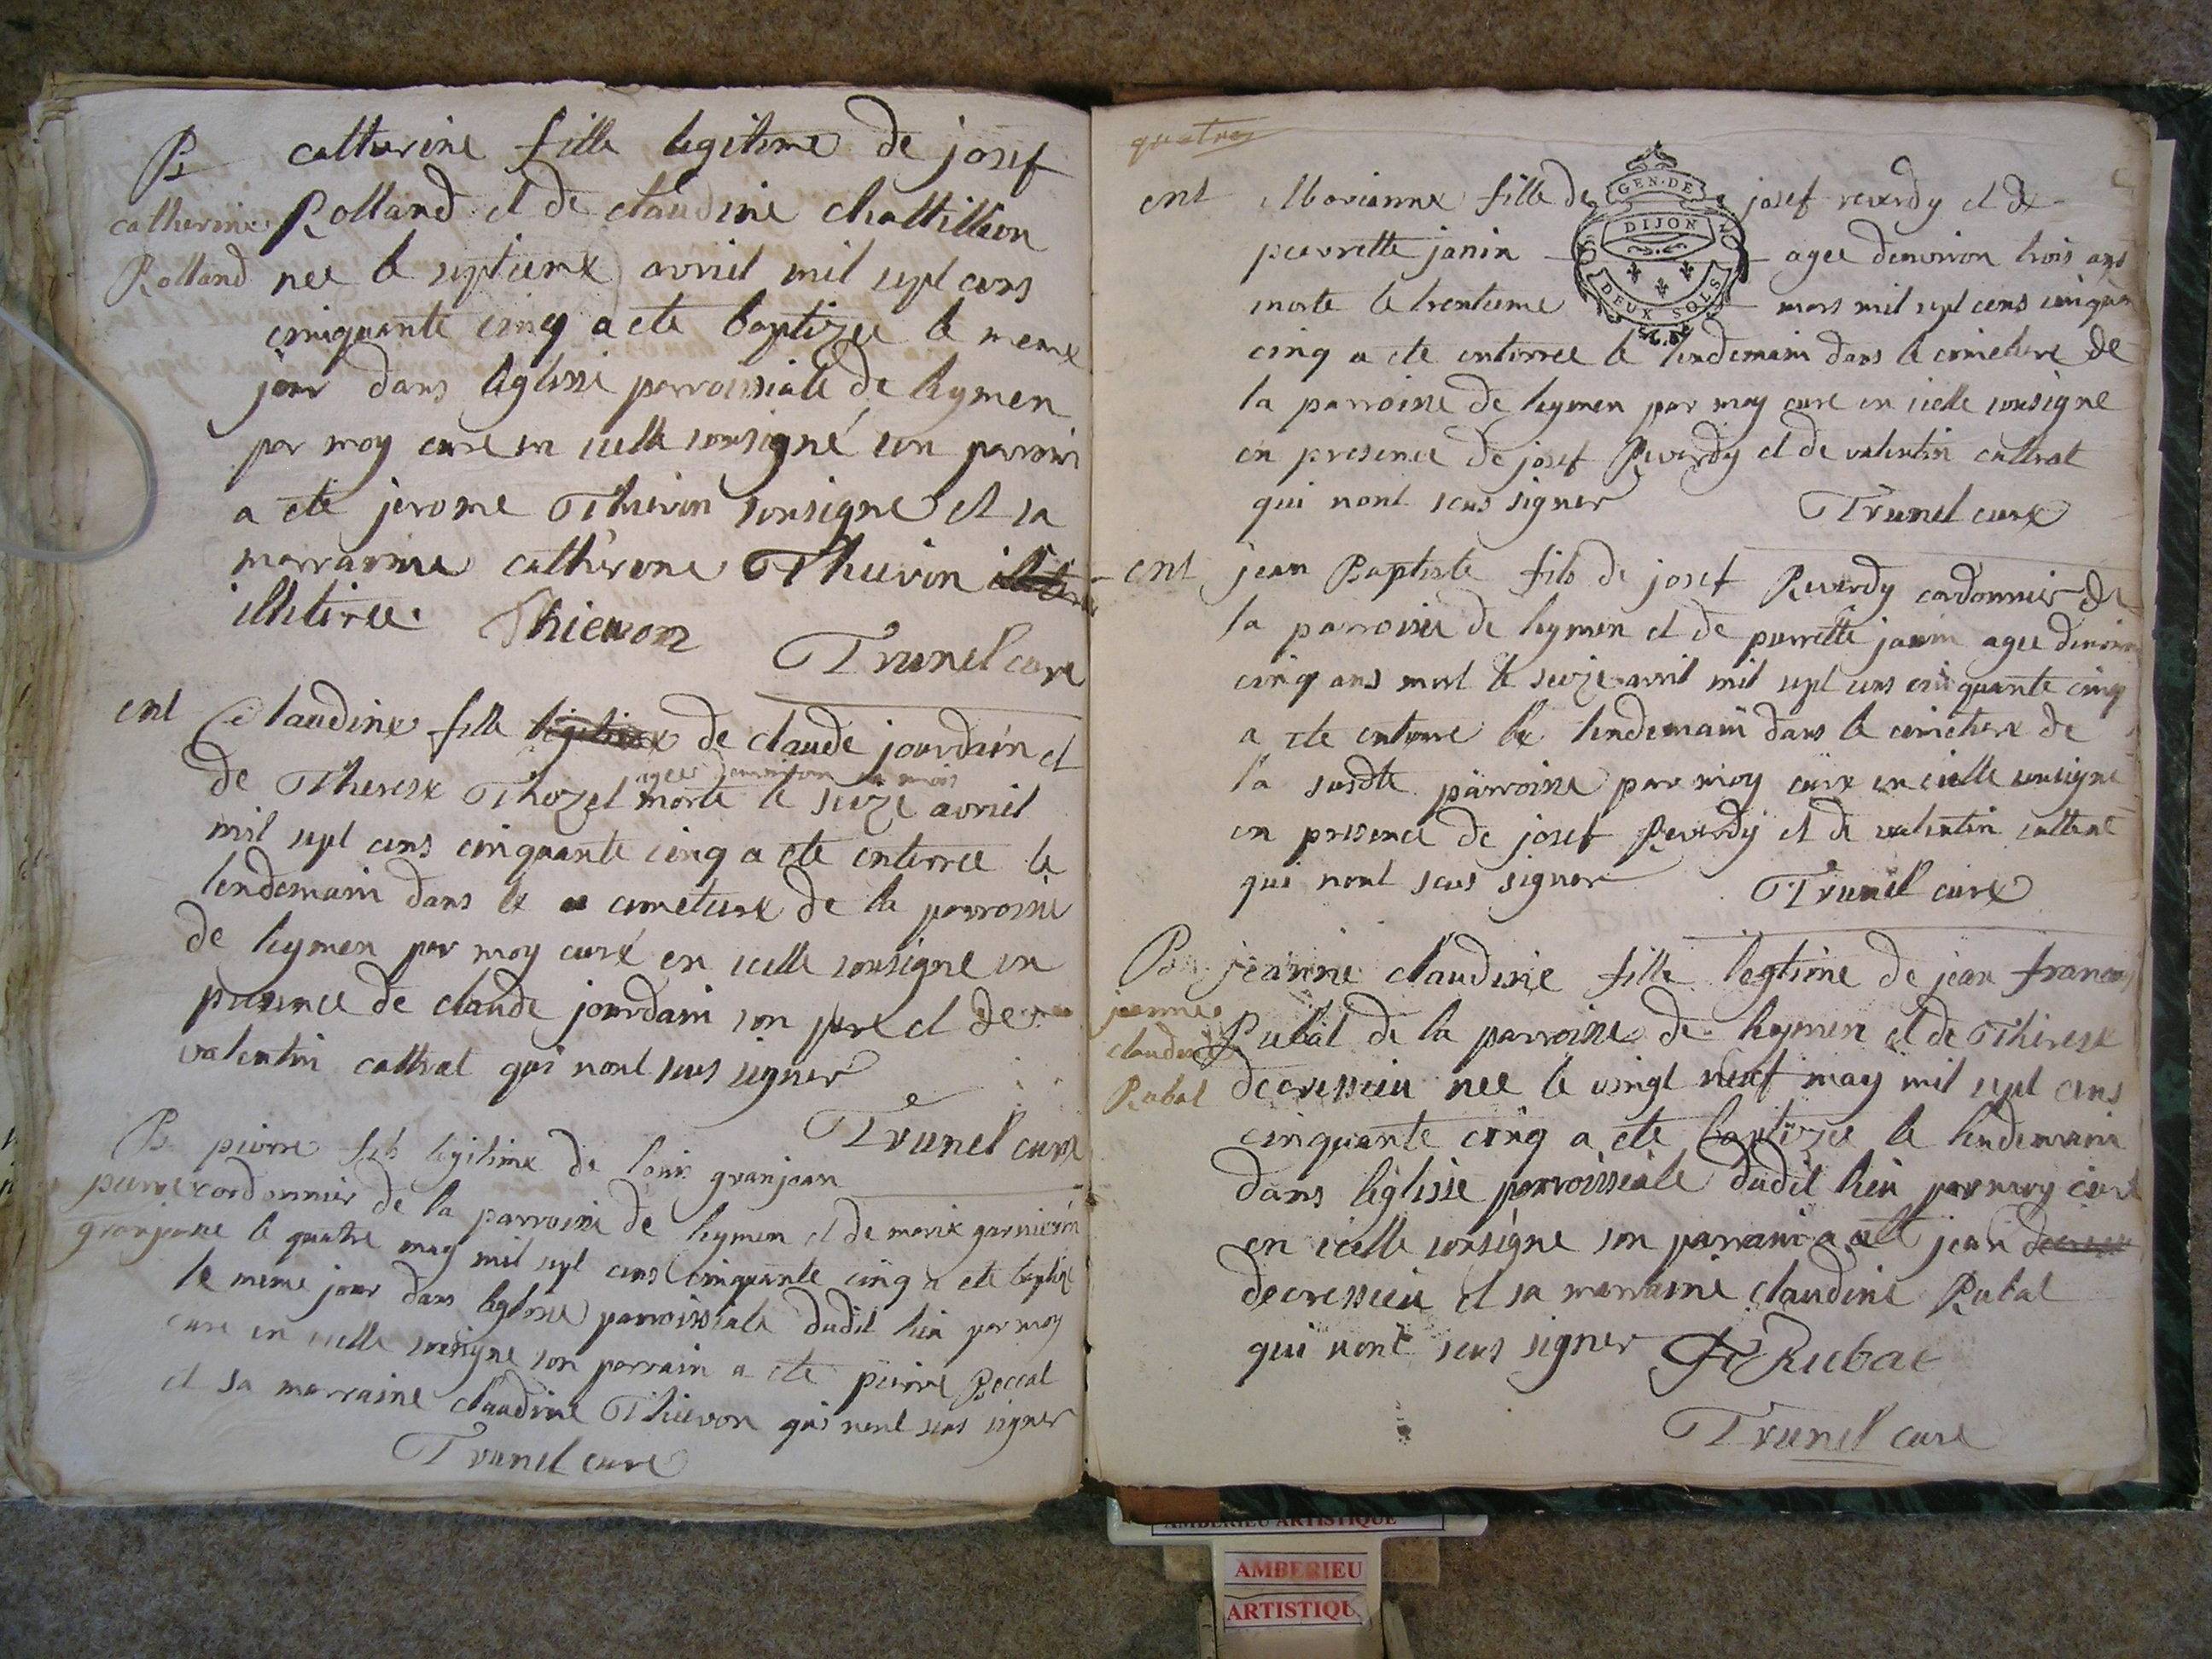 B
catherine
Rolland
catherine fille legitime de josef
Rolland et de claudine chattillion
nee le septieme avriil mil sept cens
cinquante cinq a ete baptizee le meme
jour dans leglisse parroissiale de leymen
par moy cure en icelle sousigné son parrain
a ete jerome Thievon sousigne et sa
marraine catherine Thievon
illitiree. Thievon
Trunel cure
ent
Claudine fille legitime de claude jourdain et
agee denviron mois
de Therese Thozel morte le seize avriil
mil sept cens cinquante cinq a ete enterree le
lendemain dans le cimetiere de la parroisse
de leymen par moy curé en icelle sousigne en
presence de claude jourdain son pere et de
valentin cattrat qui nont sceus signer
Trunel cure
B
pierre
granjean
pierre fils legitime de louis granjean
cordonnier de la parroisse de leymen et de marie garnier né
le quatre may mil sept cens cinquante cinq a ete baptizé
le meme jour dans leglisse parroissiale dudit lieu par moy
cure en icelle sousigne son parrain a ete pierre Beccat
et sa marraine claudine Thievon qui nont sceus signer
Trunel cure
quatre
GEN. DE
DIJON
DEUX SOLS
ent
Marianne fille de josef reverdy et de
pierrette janin agee denviron trois ans
morte le trentieme mars mil sept cens cinquan
cinq a ete enterree le lendemain dans le cimetiere de
la parroisse de leymen par moy cure en icelle sousigne
en presence de josef Reverdy et de valentin cattrat
qui nont sceus signer Trunel cure
ent
jean Baptiste fils de josef Reverdy cordonnier de
la parroisse de leymen et de pierrette janin agee denviron
cinq ans mort le seize avril mil sept cens cinquante cinq
a ete enterre le lendemain dans le cimetiere de
la susdte parroisse par moy cure en icelle sousigne
en presence de josef Reverdy et de valentin cattrat
qui nont sceus signer Trunel cure
B
jeanne
claudine
Rubat
jeanne claudine fille legtime de jean francois
Rubat de la parroisse de leymen et de Therese
decressieu nee le vingt neuf may mil sept cens
cinquante cinq a ete baptizee le lendemain
dans leglisse parroissiale dudit lieu par moy cure
en icelle sousigne son parrain a ete jean
decressieu et sa marraine claudine Rubat
qui nont sceus signer Rubat
Trunel cure
AMBERIEU ARTISTIQUE
AMBERIEU
ARTISTIQU